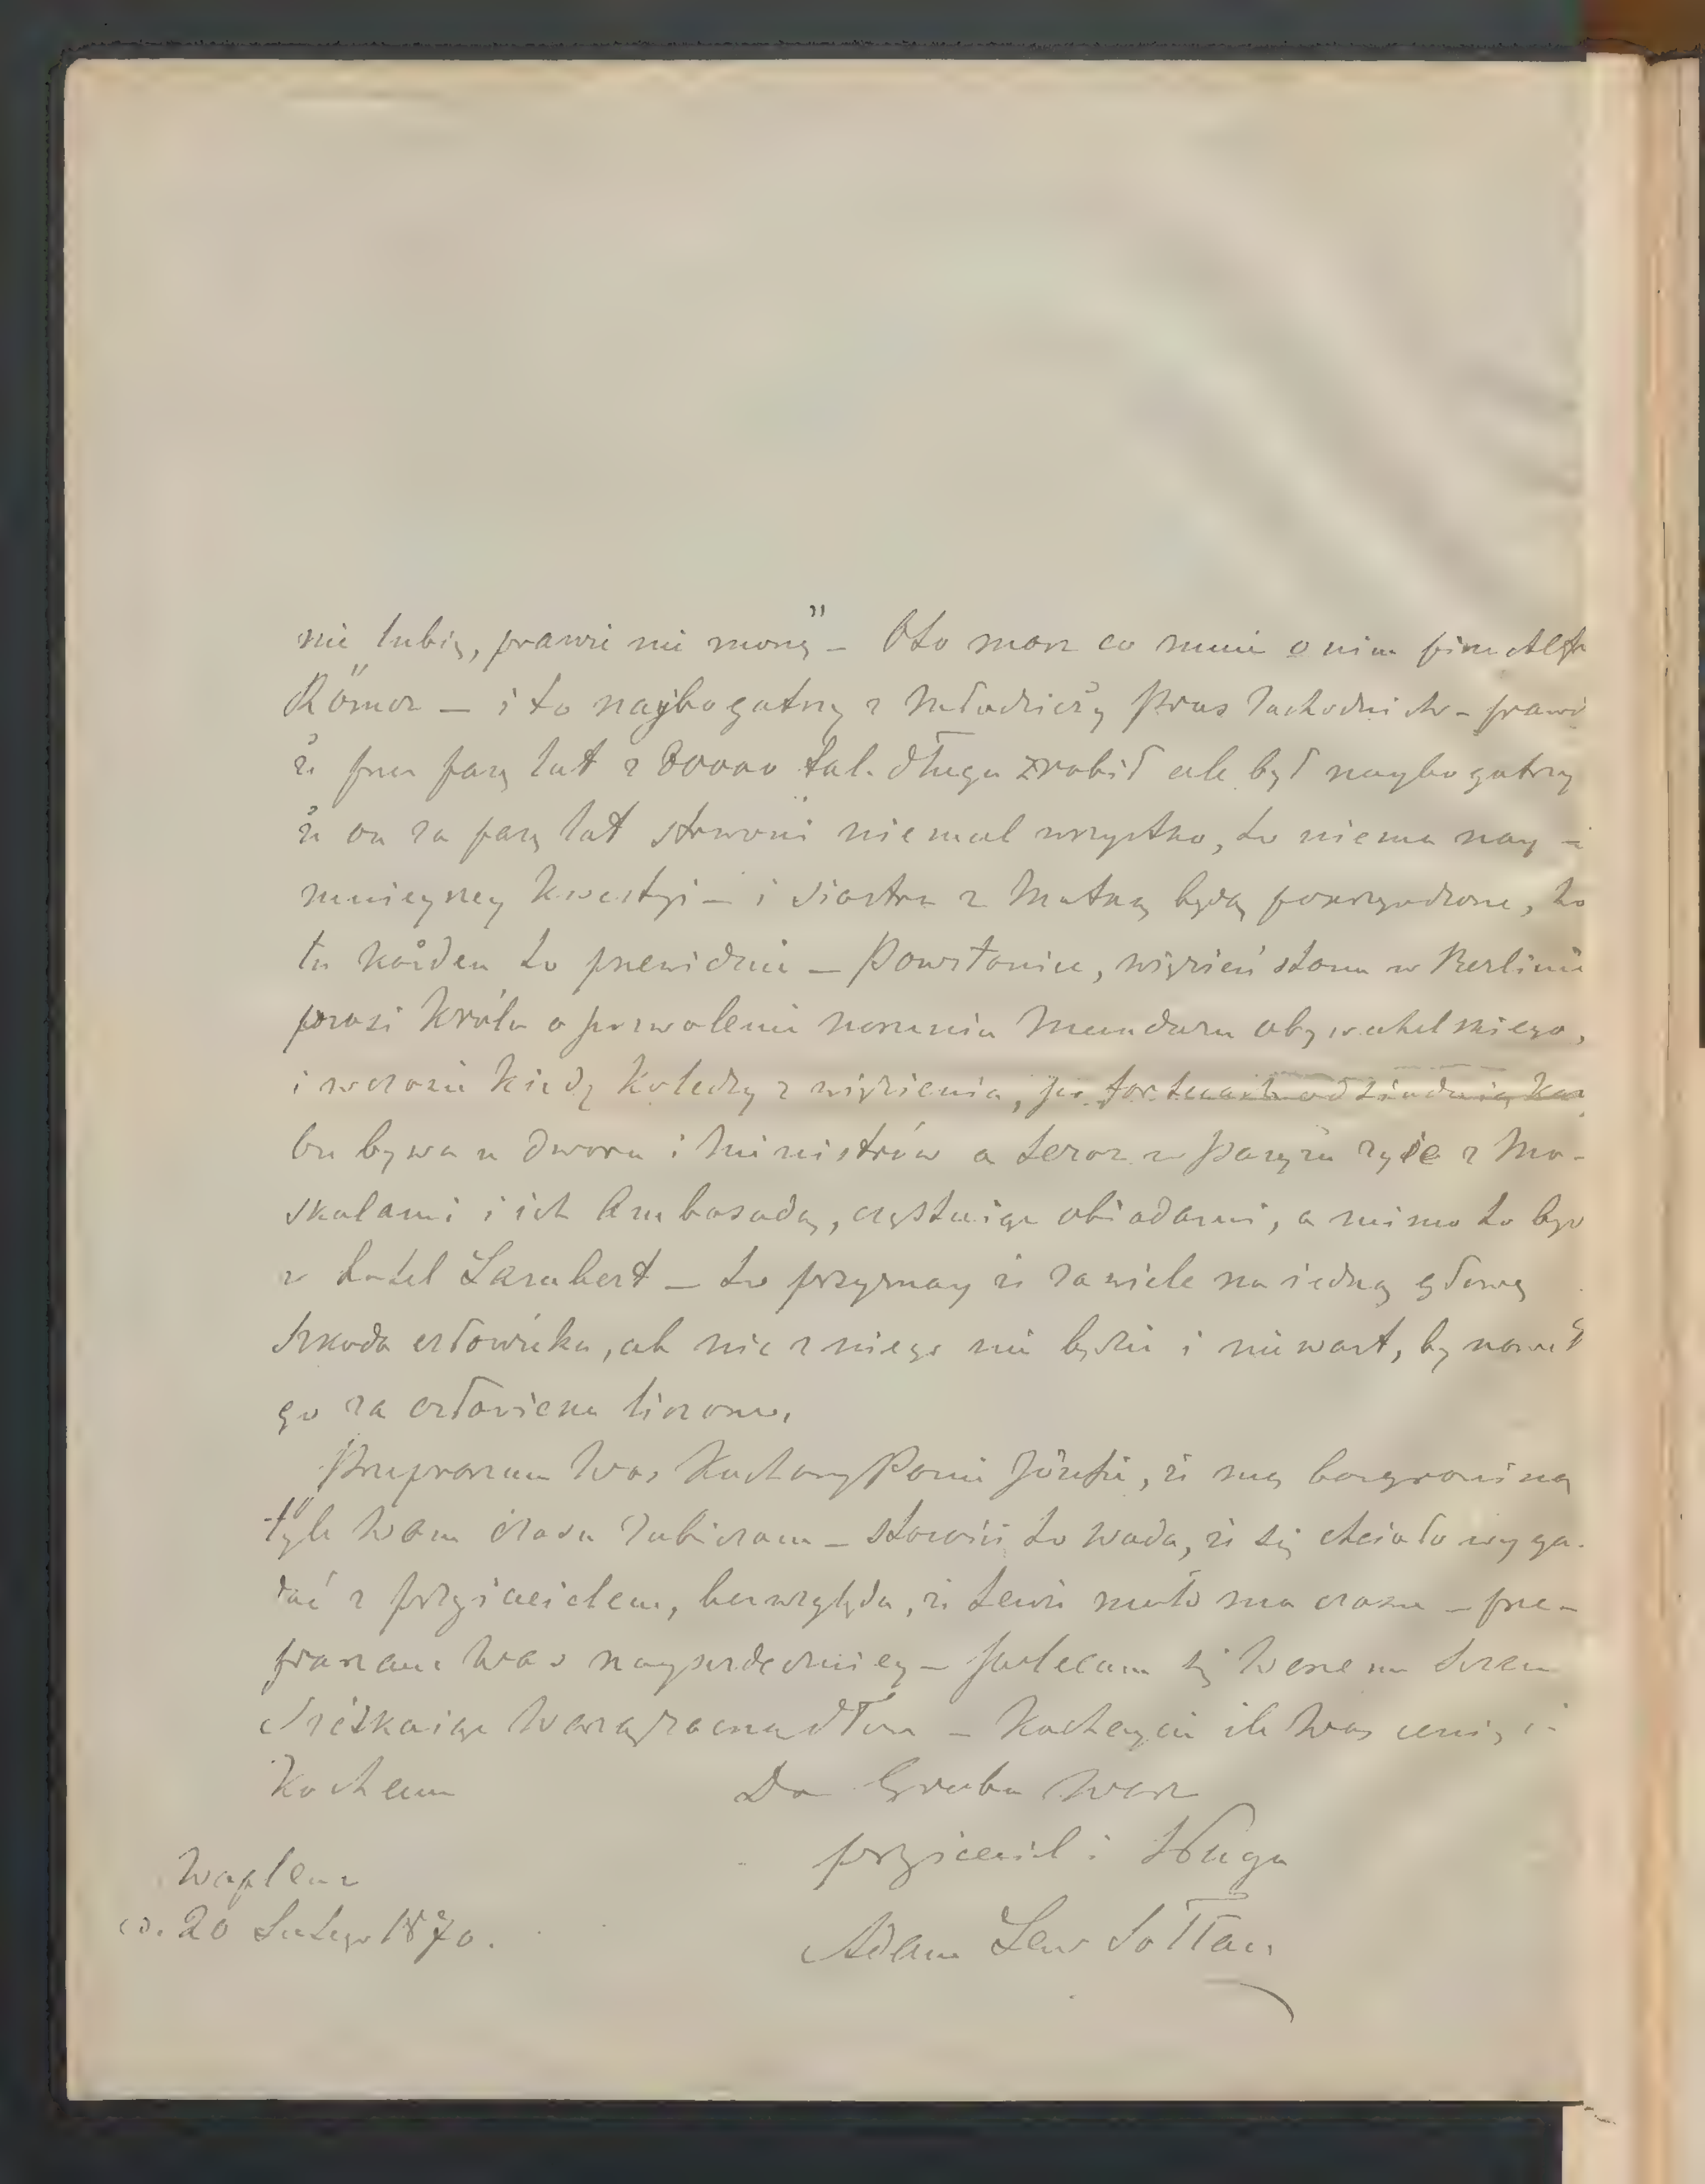 nie lubię, prawie nie mogę" – Oto masz co mnie o nim pisze
Römer – i to najbogatszy z Młodzieży Prus Zachodnich – prawi
że przez parę lat z 80000 tal. długu zrobił ale był naybogatszy
że on za parę lat strwoni niemal wszystko, to niema nay-
mnieyszey kwestyi – i Siostra z Matką będą pokrzywdzone, bo
tu każden to przewidzie – Powstaniec, więzień stanu w Berlinie
prosi Króla o pozwolenie noszenia Munduru obywatelskiego,
i w czasie kiedy Koledzy z więzienia, po fortecach odsiadują
bu bywa u Dworu i Ministrów a teraz w Paryżu żyie z Mo-
skalami i ich Ambasadą, częstuiąc obiadami, a mimo to był
w hotel Lambert – to przyznay że za wiele na iedną głowę
Szkoda człowieka, ale nic z niego nie będzie i nie wart, by nawet
go za człowieka liczono.
Przepraszam Was Kochany Panie Józefie, że mą bazgraniną
tyle Wam czasu zabieram – starości to wada, że się chciało wyga-
dać z przyiacielem, bez względu, że tenże mało ma czasu – prze-
praszam Was nayserdeczniey – polecam się Waszemu Sercu
Sciskaiąc Waszą zacną dłoń – Kochaycie ile Was cenię i
Kocham
Do Grobu Wasz
przyiaciel i Sługa
Adam Lew Sołtan
Waplewo
d. 20 Lutego 1870.